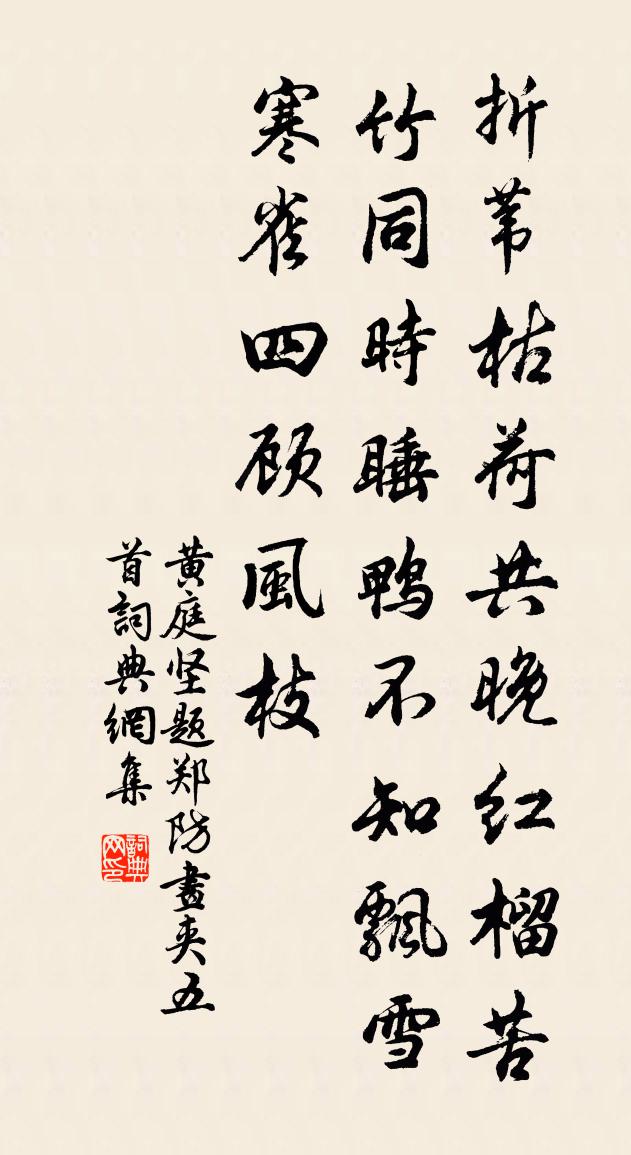 折苇枯荷共晚红榴苦
竹同時睡鴨不知飄雪
寒雀四顾風枝
黄庭坚题郑防畫夹五
首詞典網集
詞典网印